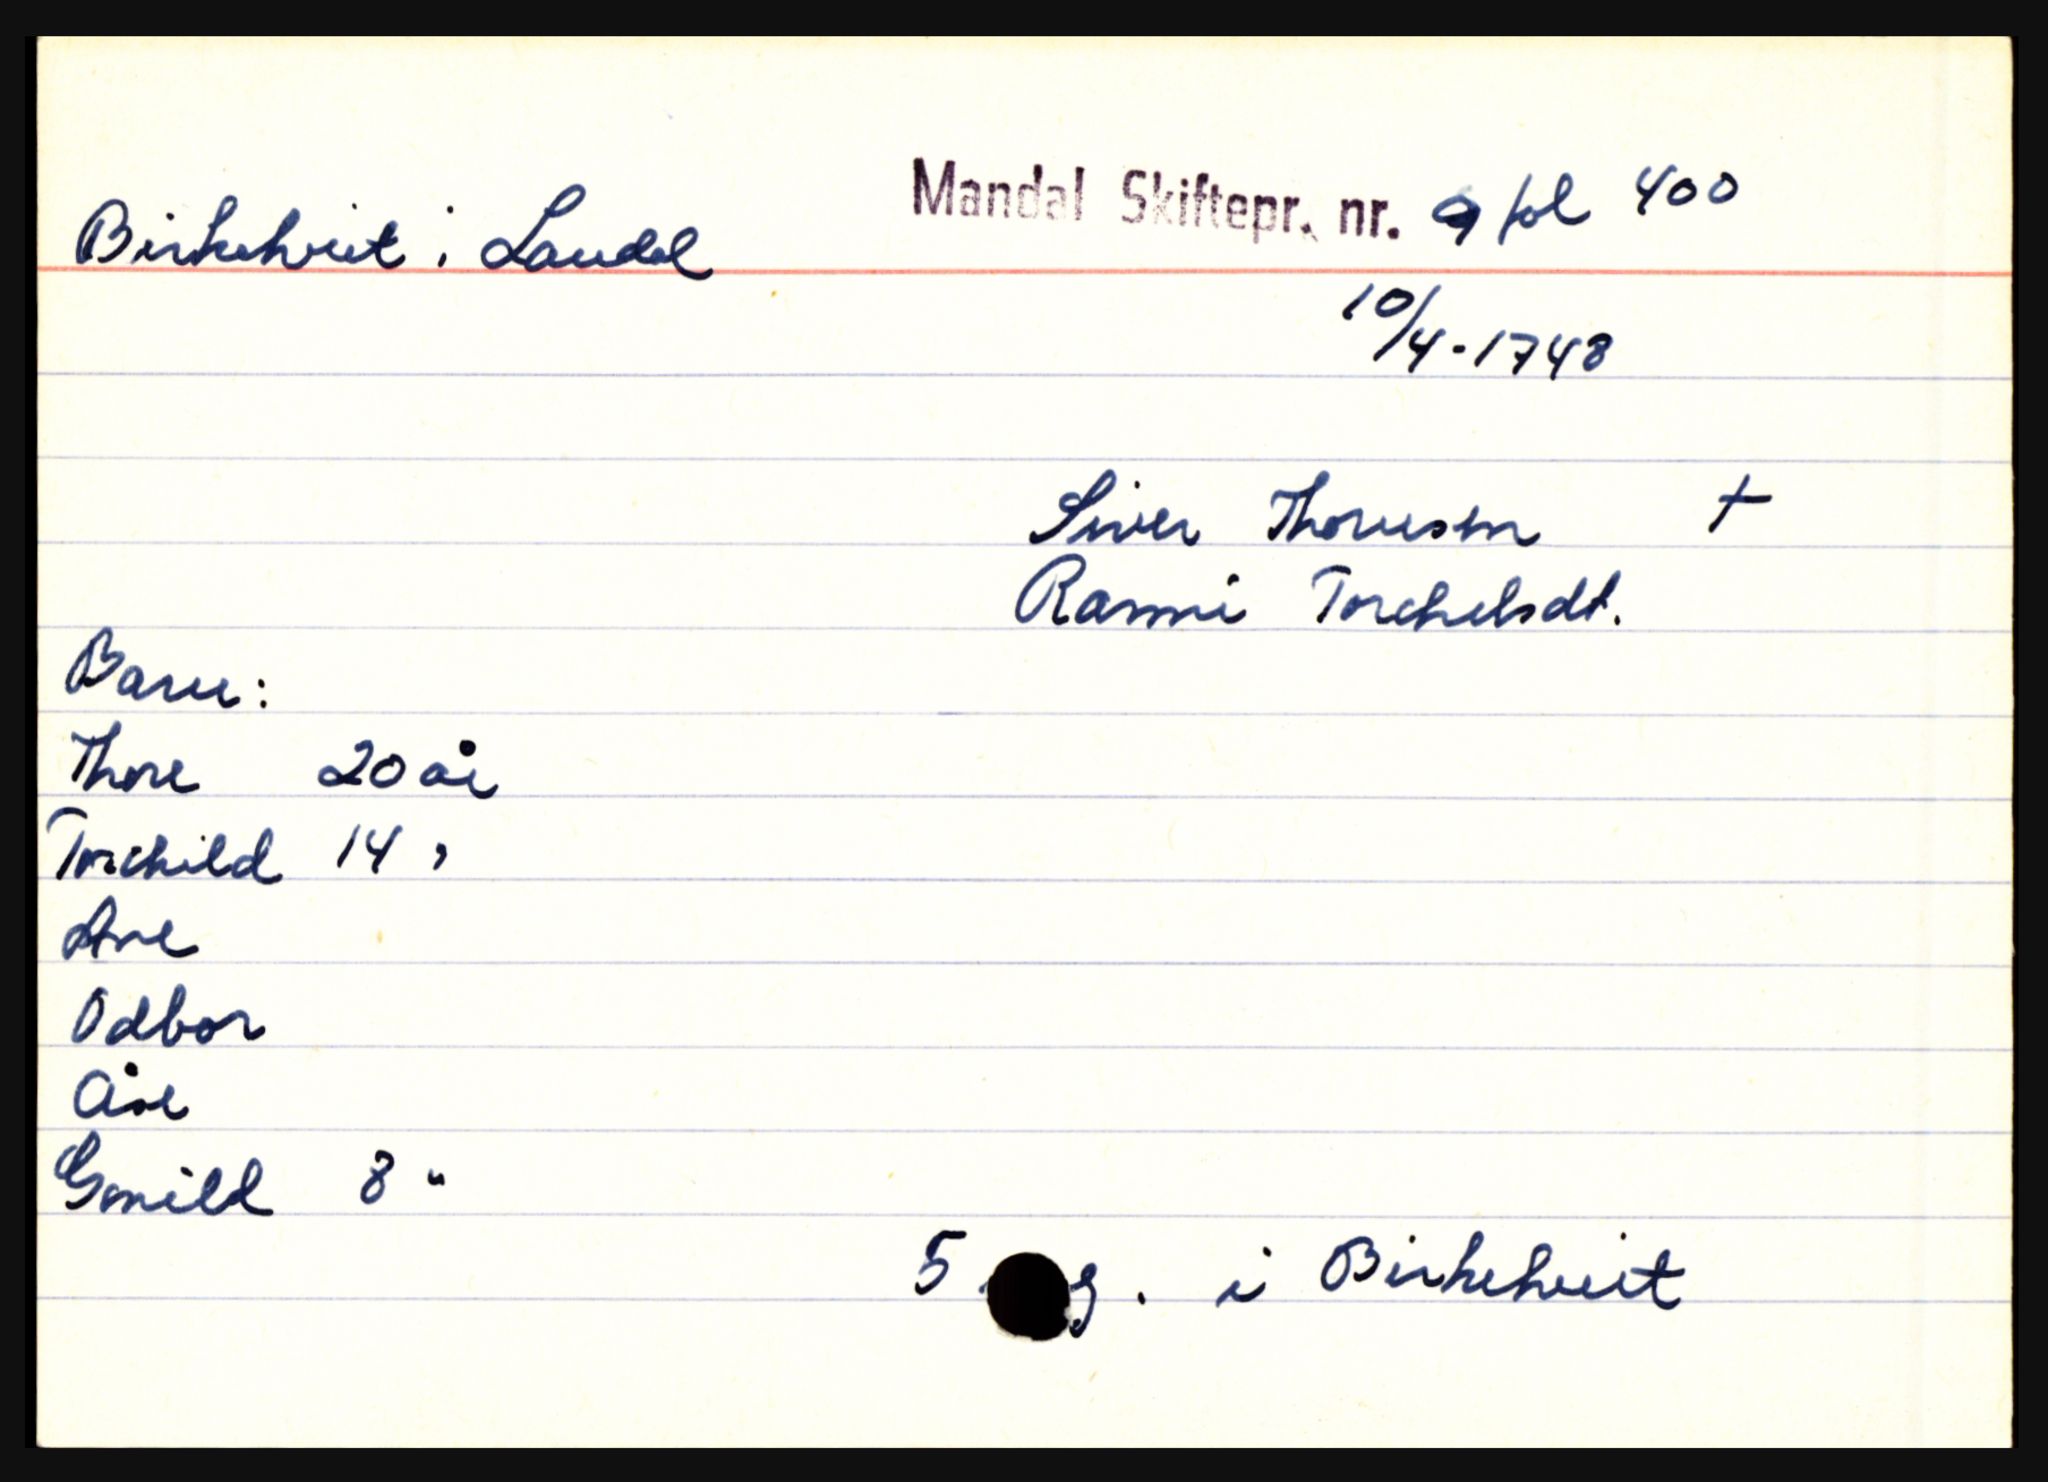 Birkehveit i Laudal
Mandal Skiftepr. nr. 9 fol 400
10/4-1748
Siver Thoresen †
Ranni Torchelsdt.
Barn:
Thore 20 år
Torchild 14 "
Ane
Odbor
Åse
Gonild 8 "
5 g. i Birkehveit